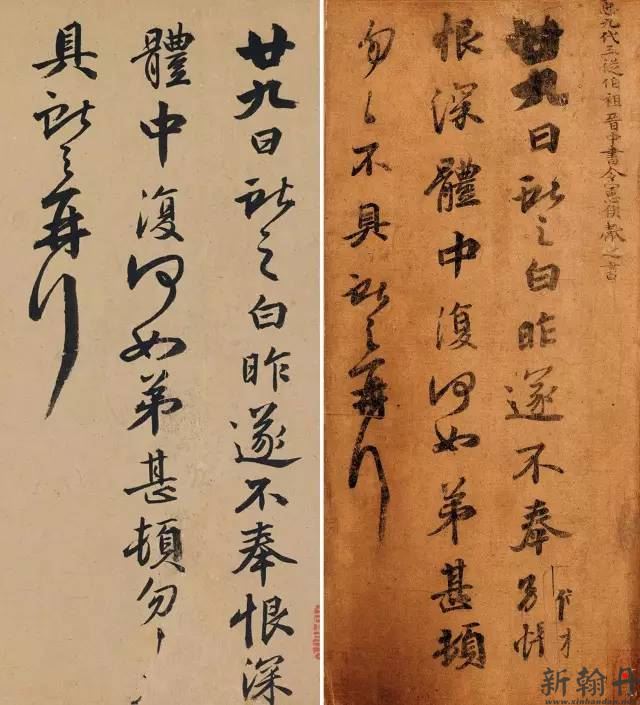 廿九日獻之白昨遂不奉恨深
體中復何如弟甚頓勿〻
具獻之再拜
九代三從伯祖晉中書令憲侯獻之書
廿九日獻之白昨遂不奉別悵
恨深體中復何如弟甚頓
勿〻不具獻之再拜
新翰丹
www.xinhandan.net